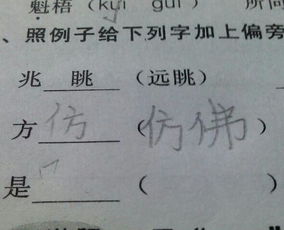 魁梧（kuí guī）
、照例子给下列字加上偏旁
兆 眺 （远眺）
方 仿 （仿佛）
是 （ ）